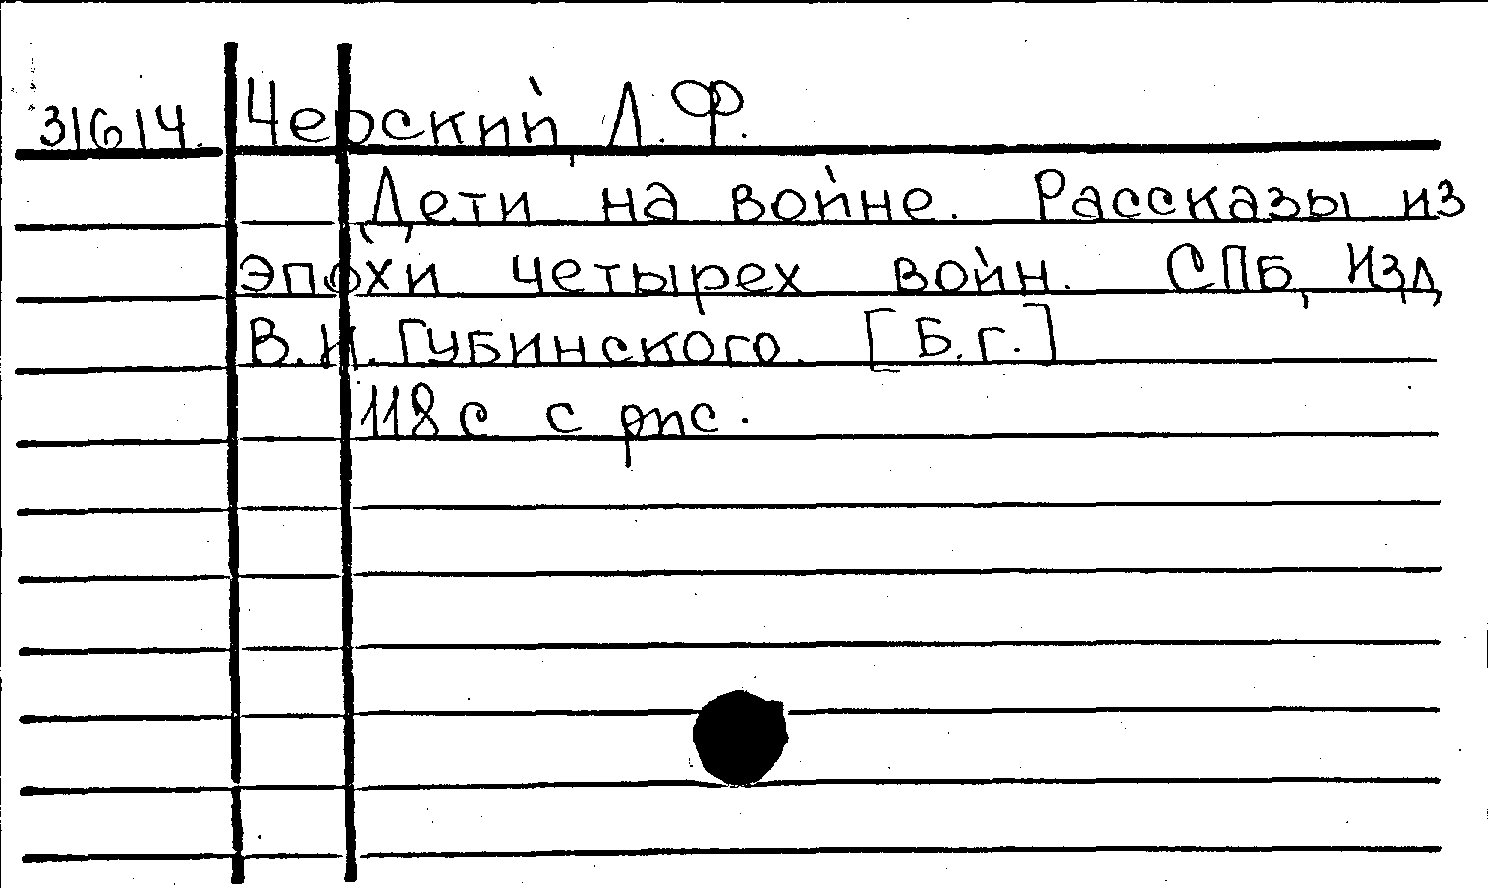 31614. Черский, Л. Ф.
Дети на войне. Рассказы из
эпохи четырех войн. СПБ, Изд
В.И. Губинского. [Б.г.]
118 с с рис.